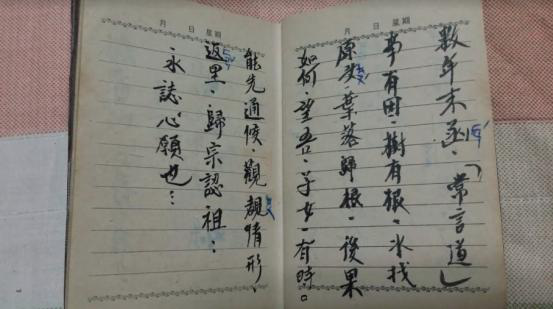 月 日 星期
數年未函.「常言道」
事有因.樹有根.水找
原头.葉落歸根.後果
如何.望吾.子女.有時。
月 日 星期
能先通候.觀覩情形、
返里.歸宗認.祖:
永誌心願也…